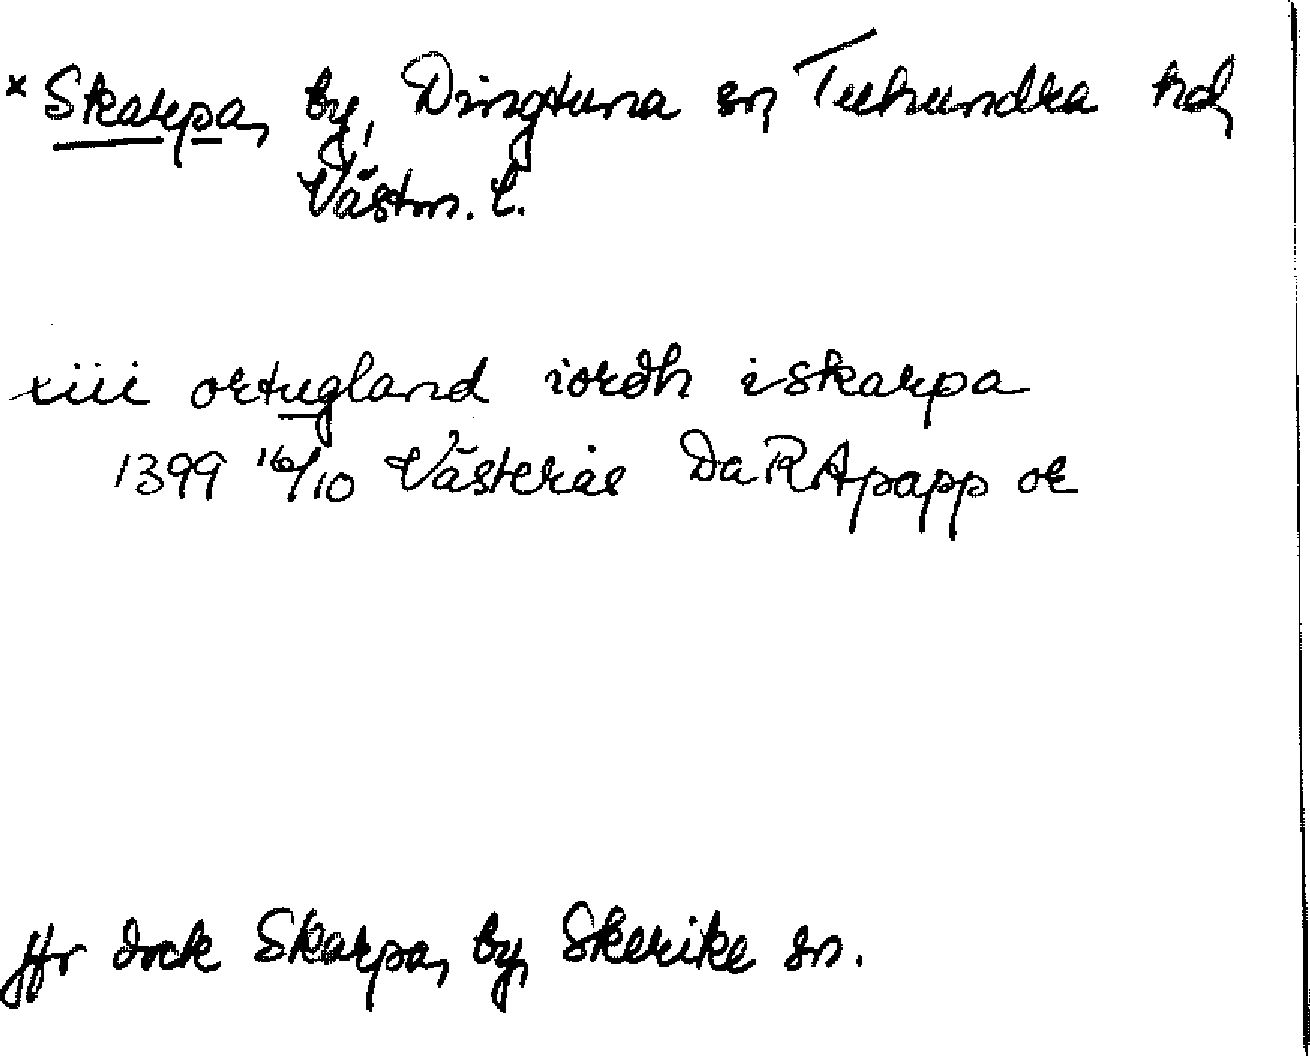 × Skarpa, by, Dingtuna sn, Tuhundra hd,
Västm. l.
xiii ortugland iordh i skarpa
1399 16/10 Västerås Da RApapp or
Jfr dock Skarpa, by, Skerike sn.